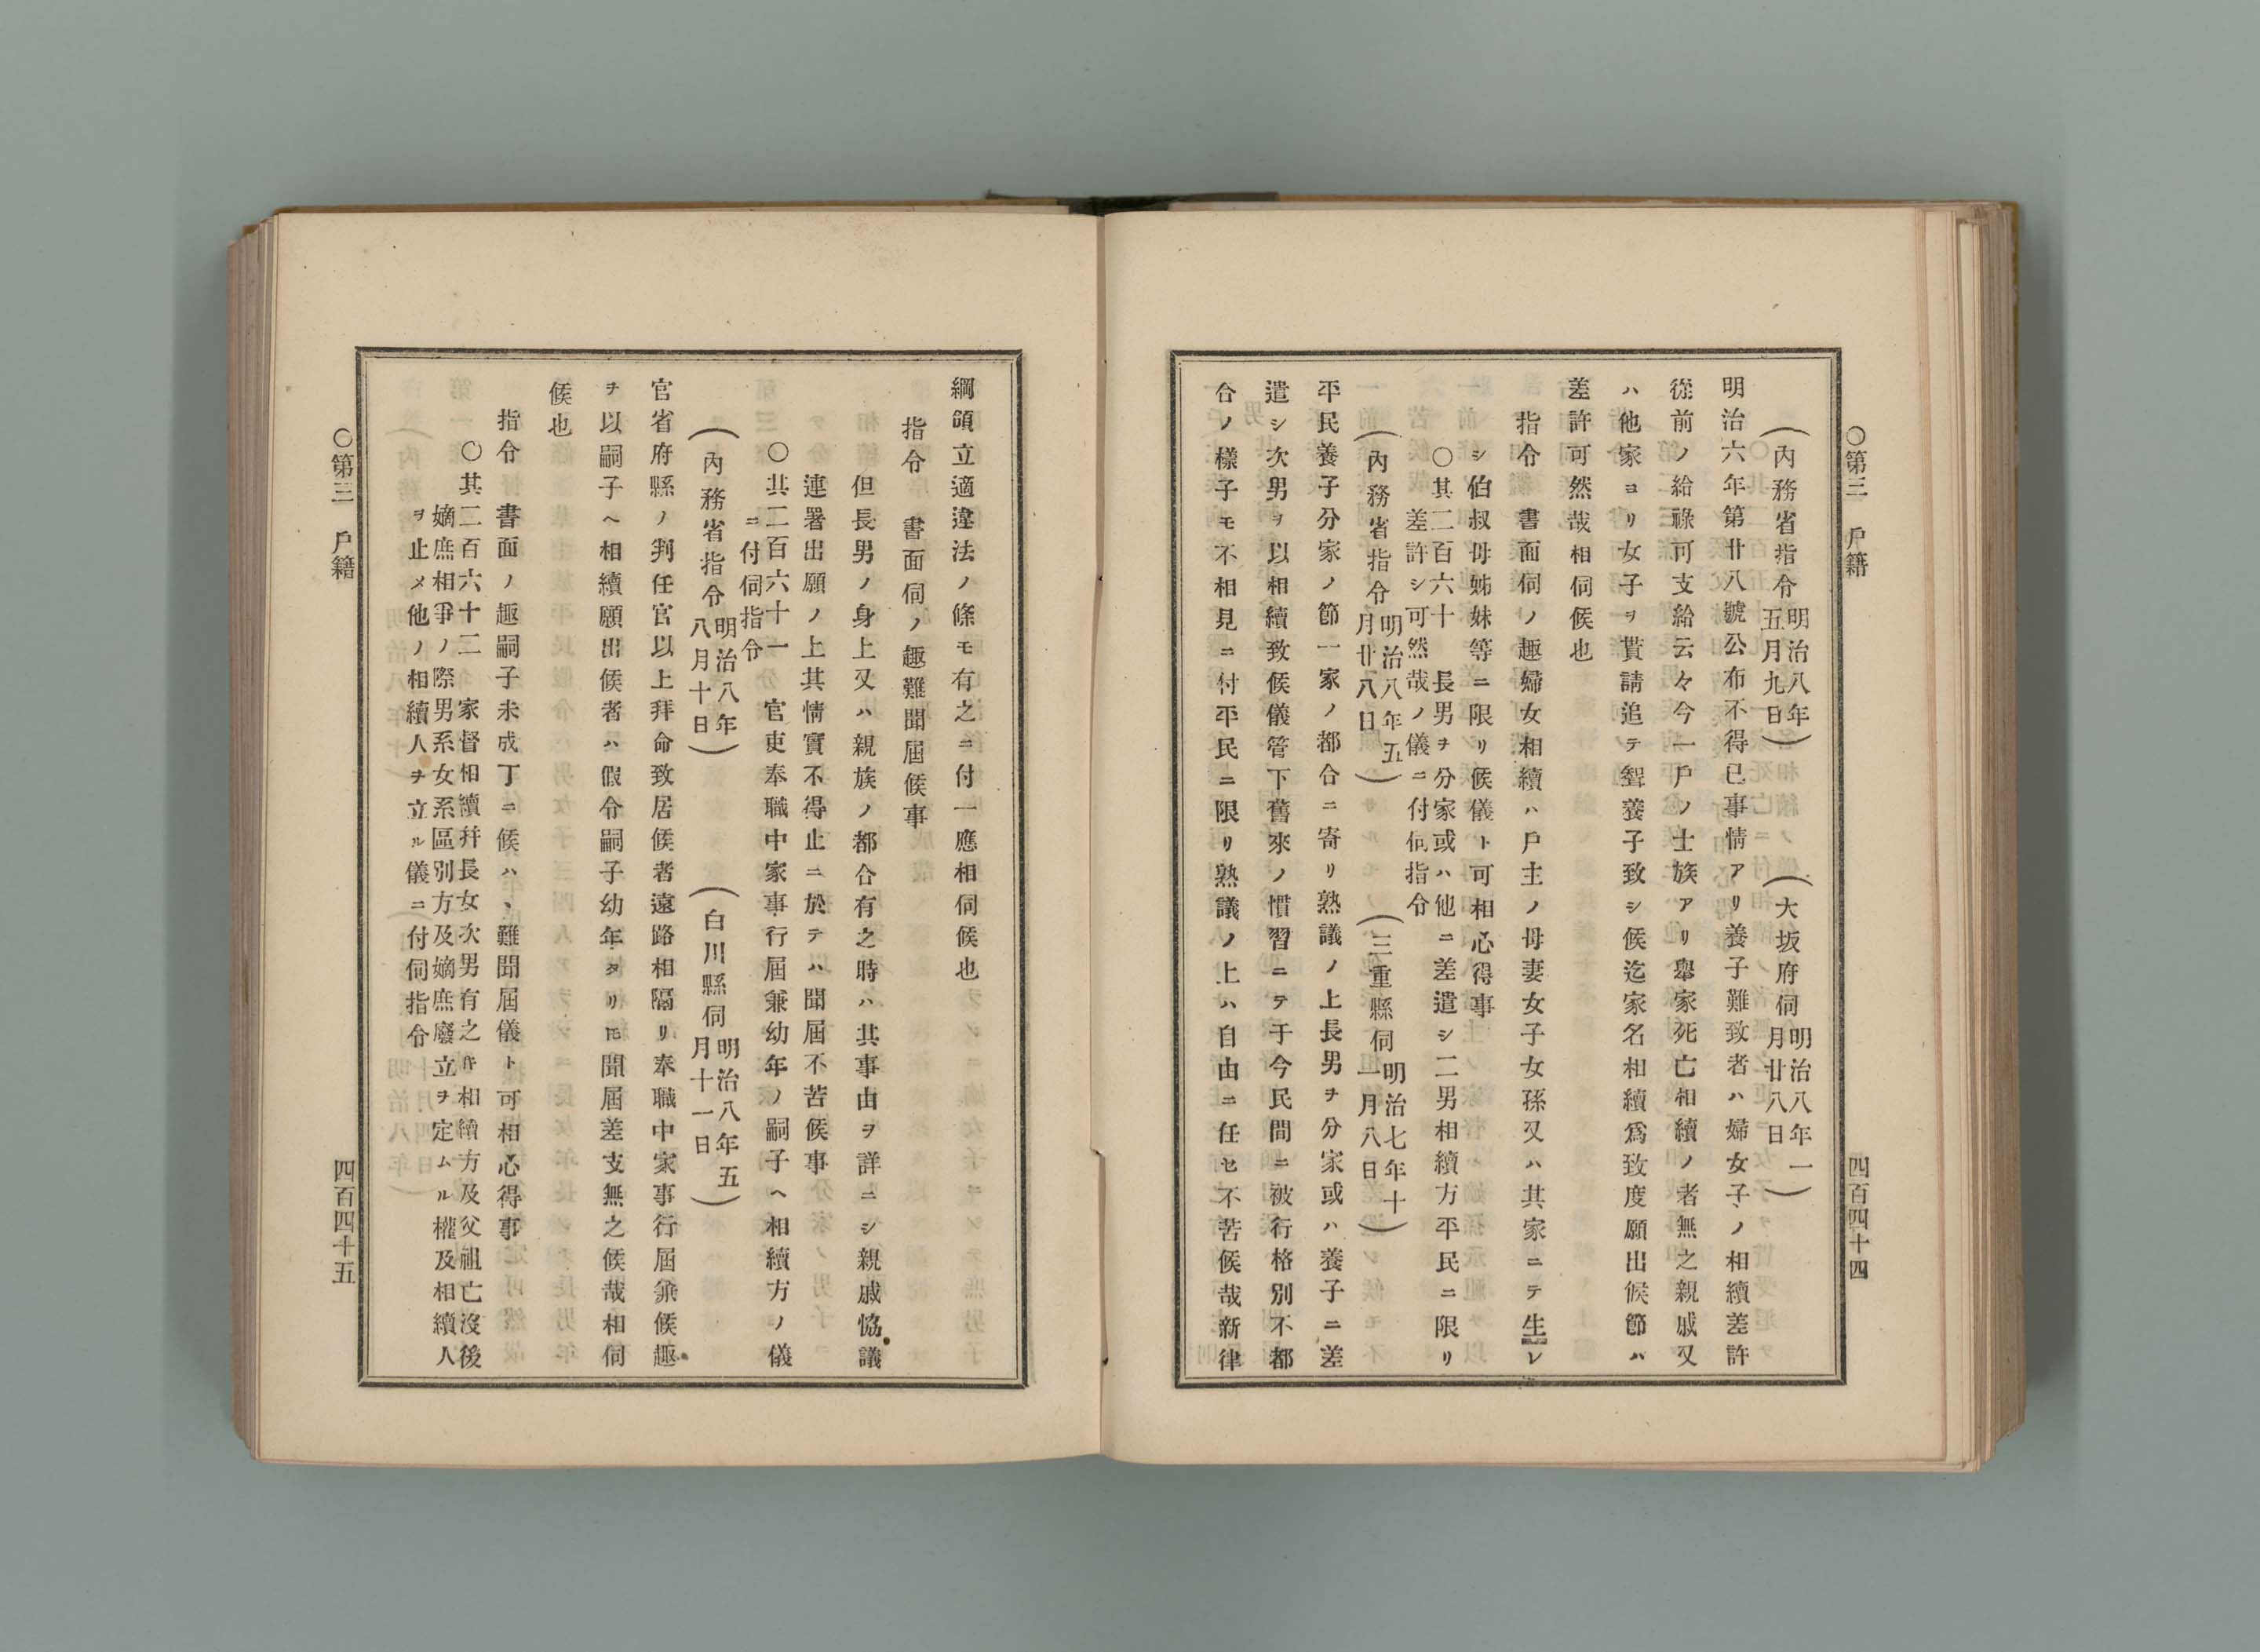 ○第三　戶籍
四百四十四
（內務省指令明治八年五月九日）　（大坂府伺明治八年一月廿八日）
明治六年第廿八號公布不得已事情アリ養子難致者ハ婦女子ノ相續差許
從前ノ給祿可支給云々今一戶ノ士族アリ擧家死亡相續ノ者無之親戚又
ハ他家ヨリ女子ヲ貰請追テ聟養子致シ候迄家名相續爲致度願出候節ハ
差許可然哉相伺候也
指令　書面伺ノ趣婦女相續ハ戶主ノ母妻女子女孫又ハ其家ニテ生レ
シ伯叔母姊妹等ニ限リ候儀ト可相心得事
○其二百六十　長男ヲ分家或ハ他ニ差遣シ二男相續方平民ニ限リ
差許シ可然哉ノ儀ニ付伺指令
（內務省指令明治八年五月廿八日）　（三重縣伺明治七年十一月八日）
平民養子分家ノ節一家ノ都合ニ寄リ熟議ノ上長男ヲ分家或ハ養子ニ差
遣シ次男ヲ以相續致候儀管下舊來ノ慣習ニテ于今民間ニ被行格別不都
合ノ樣子モ不相見ニ付平民ニ限リ熟議ノ上ハ自由ニ任セ不苦候哉新律
綱領立適違法ノ條モ有之ニ付一應相伺候也
指令　書面伺ノ趣難聞屆候事
但長男ノ身上又ハ親族ノ都合有之時ハ其事由ヲ詳ニシ親戚恊議
連署出願ノ上其情實不得止ニ於テハ聞屆不苦候事
○其二百六十一　官吏奉職中家事行屆兼幼年ノ嗣子ヘ相續方ノ儀
ニ付伺指令
（內務省指令明治八年八月十日）　（白川縣伺明治八年五月十一日）
官省府縣ノ判任官以上拜命致居候者遠路相隔リ奉職中家事行屆兼候趣
ヲ以嗣子ヘ相續願出候者ハ假令嗣子幼年タリ𪜈聞屆差支無之候哉相伺
候也
指令　書面ノ趣嗣子未成丁ニ候ハヽ難聞屆儀ト可相心得事
○其二百六十二　家督相續幷長女次男有之節相續方及父祖亡沒後
嫡庶相爭ノ際男系女系區別方及嫡庶廢立ヲ定ムル權及相續人
ヲ止メ他ノ相續人ヲ立ル儀ニ付伺指令
○第三　戶籍
四百四十五